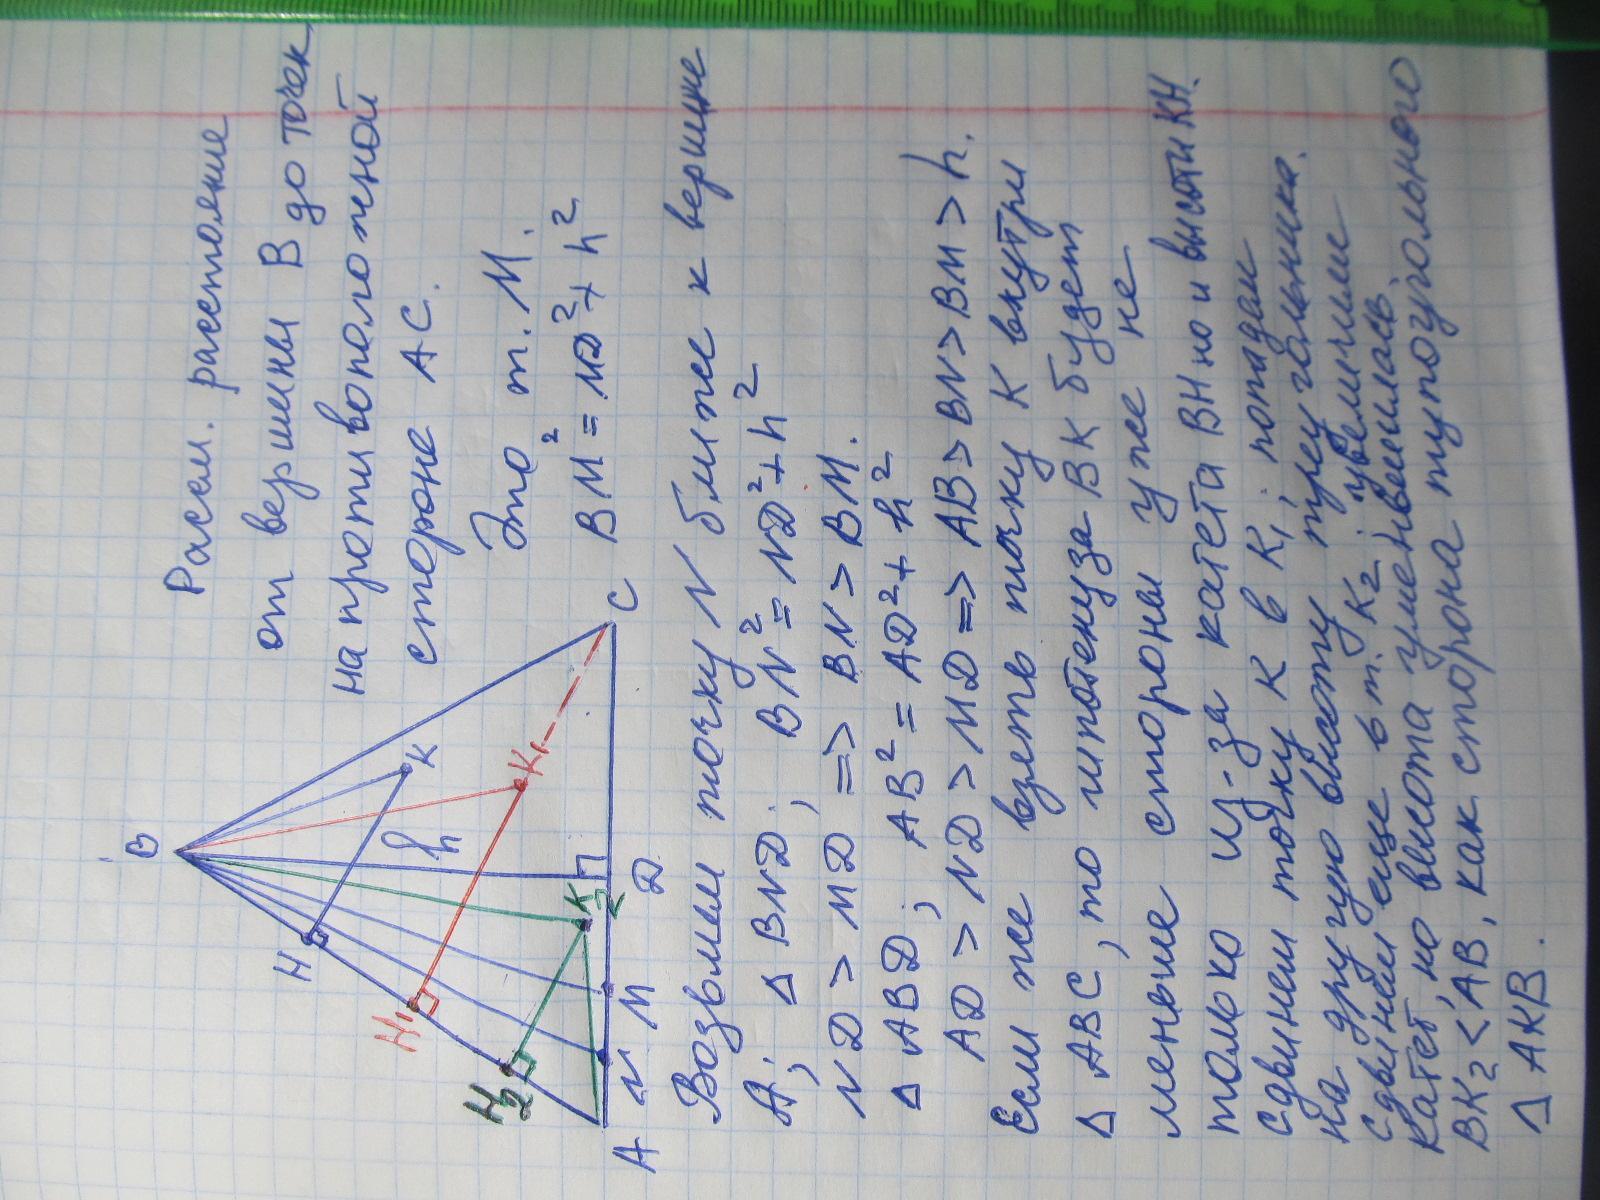 Рассм. расстояние
от вершины В до точек
на противоположной
стороне АС.
Это т. М.
BM² = MD² + h²
B
K
h
K₁
H
H₁
K₂
H₂
A N M D C
Возьмем точку N ближе к вершине
А; Δ BND; BN² = ND² + h²
ND > MD => BN > BM.
Δ ABD; AB² = AD² + h²
AD > ND > MD => AB > BN > BM > h.
Если же взять точку К внутри
Δ АВС, то гипотенуза ВК будет
меньше стороны уже не
только из-за катета ВН но и высоты КН.
Сдвинем точку К в К₁; попадаем
на другую высоту треугольника.
Сдвинем еще в т. К₂; увеличили
катет, но высота уменьшилась.
BK₂ < AB, как сторона тупоугольного
Δ AKB.